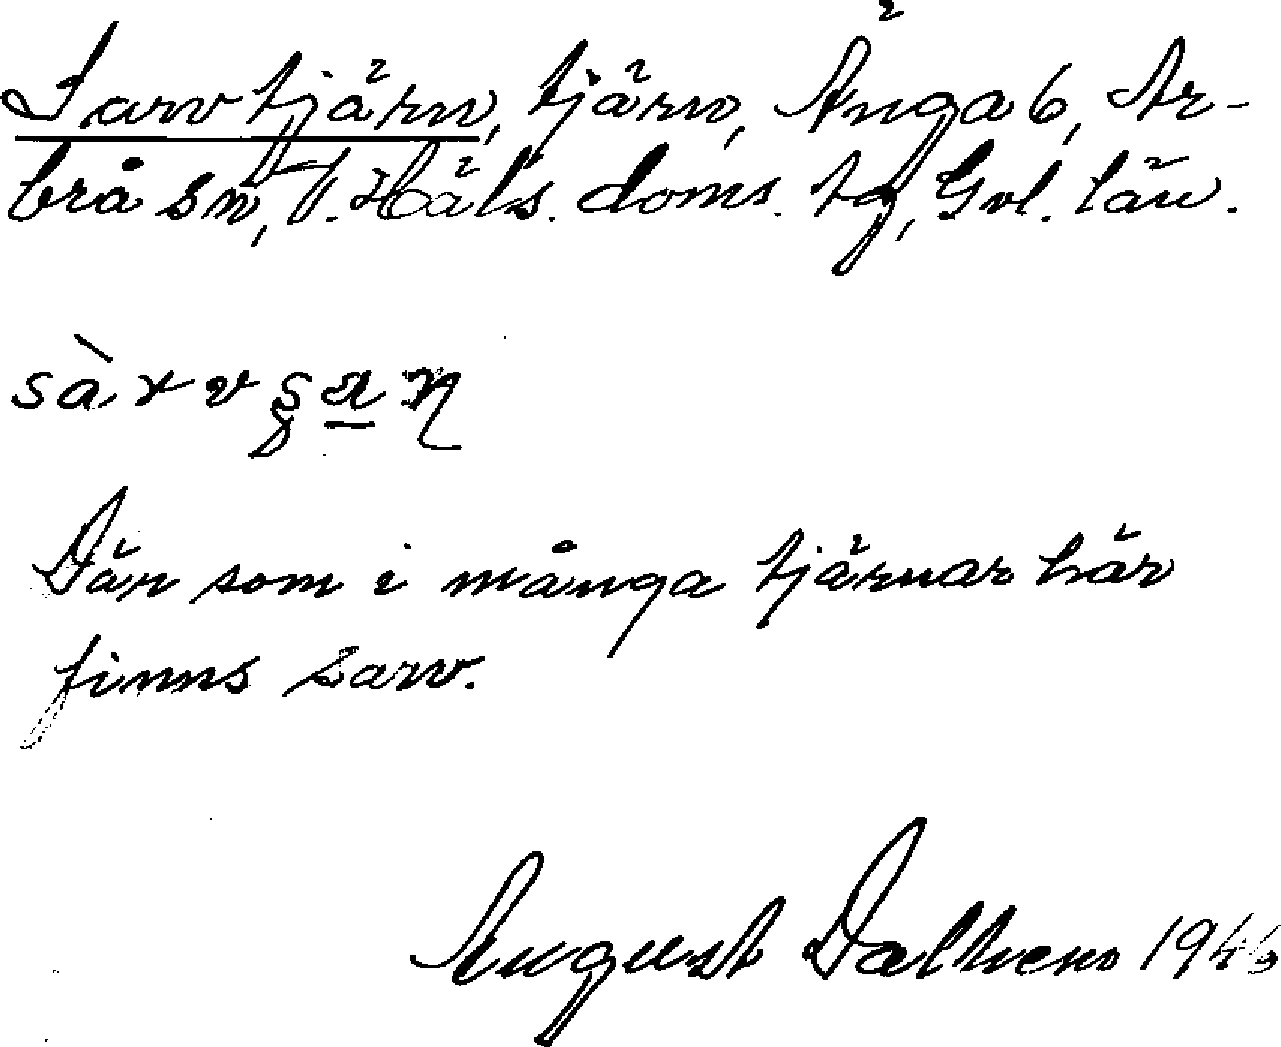 Sarvtjärn, tjärn, Änga 6, Ar-
brå sn, V. Häls. doms. tg, Gvl. län.
sàrvʂæɳ
Där som i många tjärnar här
finns sarv.
August Dalhem 1946